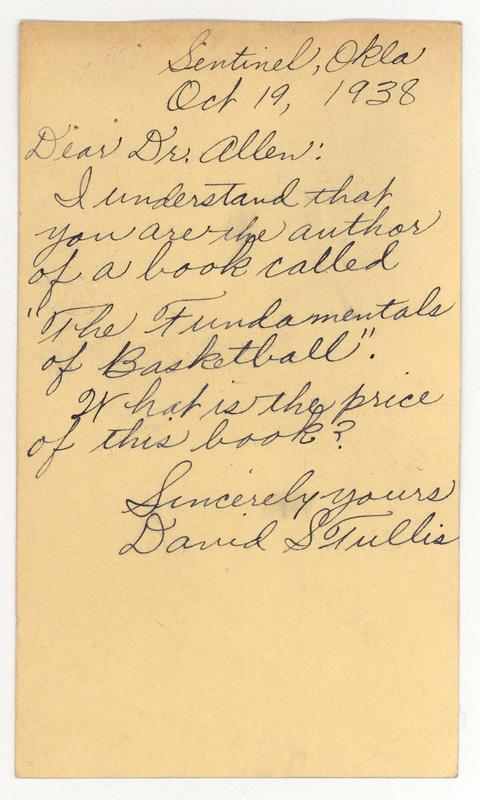 Sentinel, Okla
Oct 19, 1938
Dear Dr. Allen:
I understand that
you are the author
of a book called
"The Fundamentals
of Basketball".
What is the price
of this book?
Sincerely yours
David S Tullis